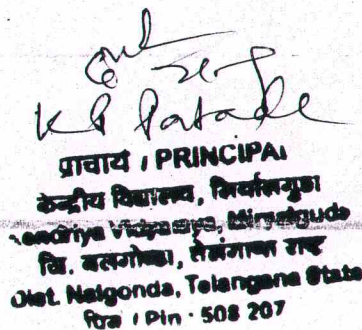 K P Patade
प्राचार्य / PRINCIPAL
केन्द्रीय विद्यालय, मिर्यालगुडा
Kendriya Vidyalaya, Miryalguda
जि. नलगोण्डा, तेलंगाना राज्य
Dist. Nalgonda, Telangana State
पिन / Pin - 508 207